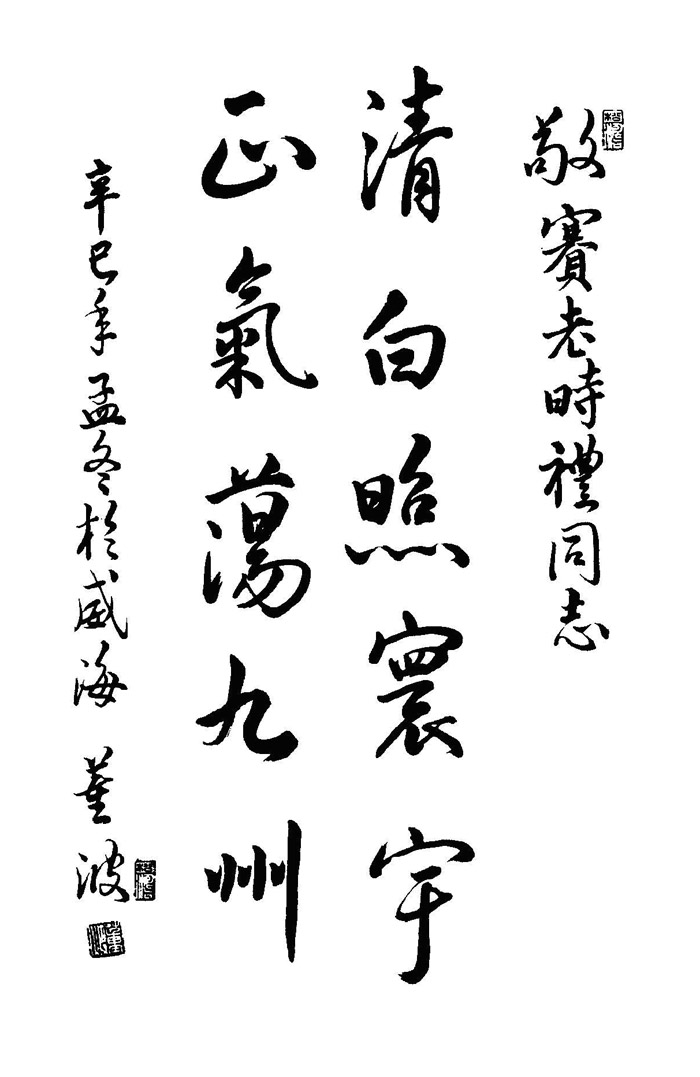 敬賽老時禮同志
清白照寰宇
正氣蕩九州
辛巳年孟冬於威海 董波